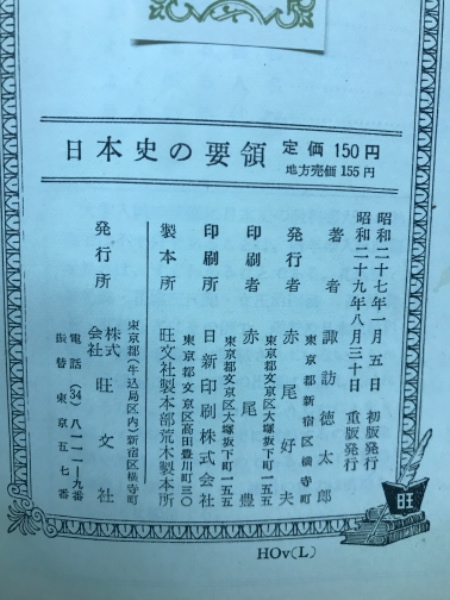 日本史の要領 定価 150円
地方売価 155円
昭和二十七年一月五日 初版発行
昭和二十九年八月三十日 重版発行
著者 諏訪徳太郎
東京都新宿区横寺町
発行者 赤尾好夫
東京都文京区大塚坂下町一五五
印刷者 赤尾豊
東京都文京区大塚坂下町一五五
印刷所 日新印刷株式会社
東京都文京区高田豊川町三〇
製本所 旺文社製本部荒木製本所
東京都(牛込局区内)新宿区横寺町
発行所 株式会社 旺文社
電話(34)八一一一―九番
振替東京五七番
旺
HOv(L)